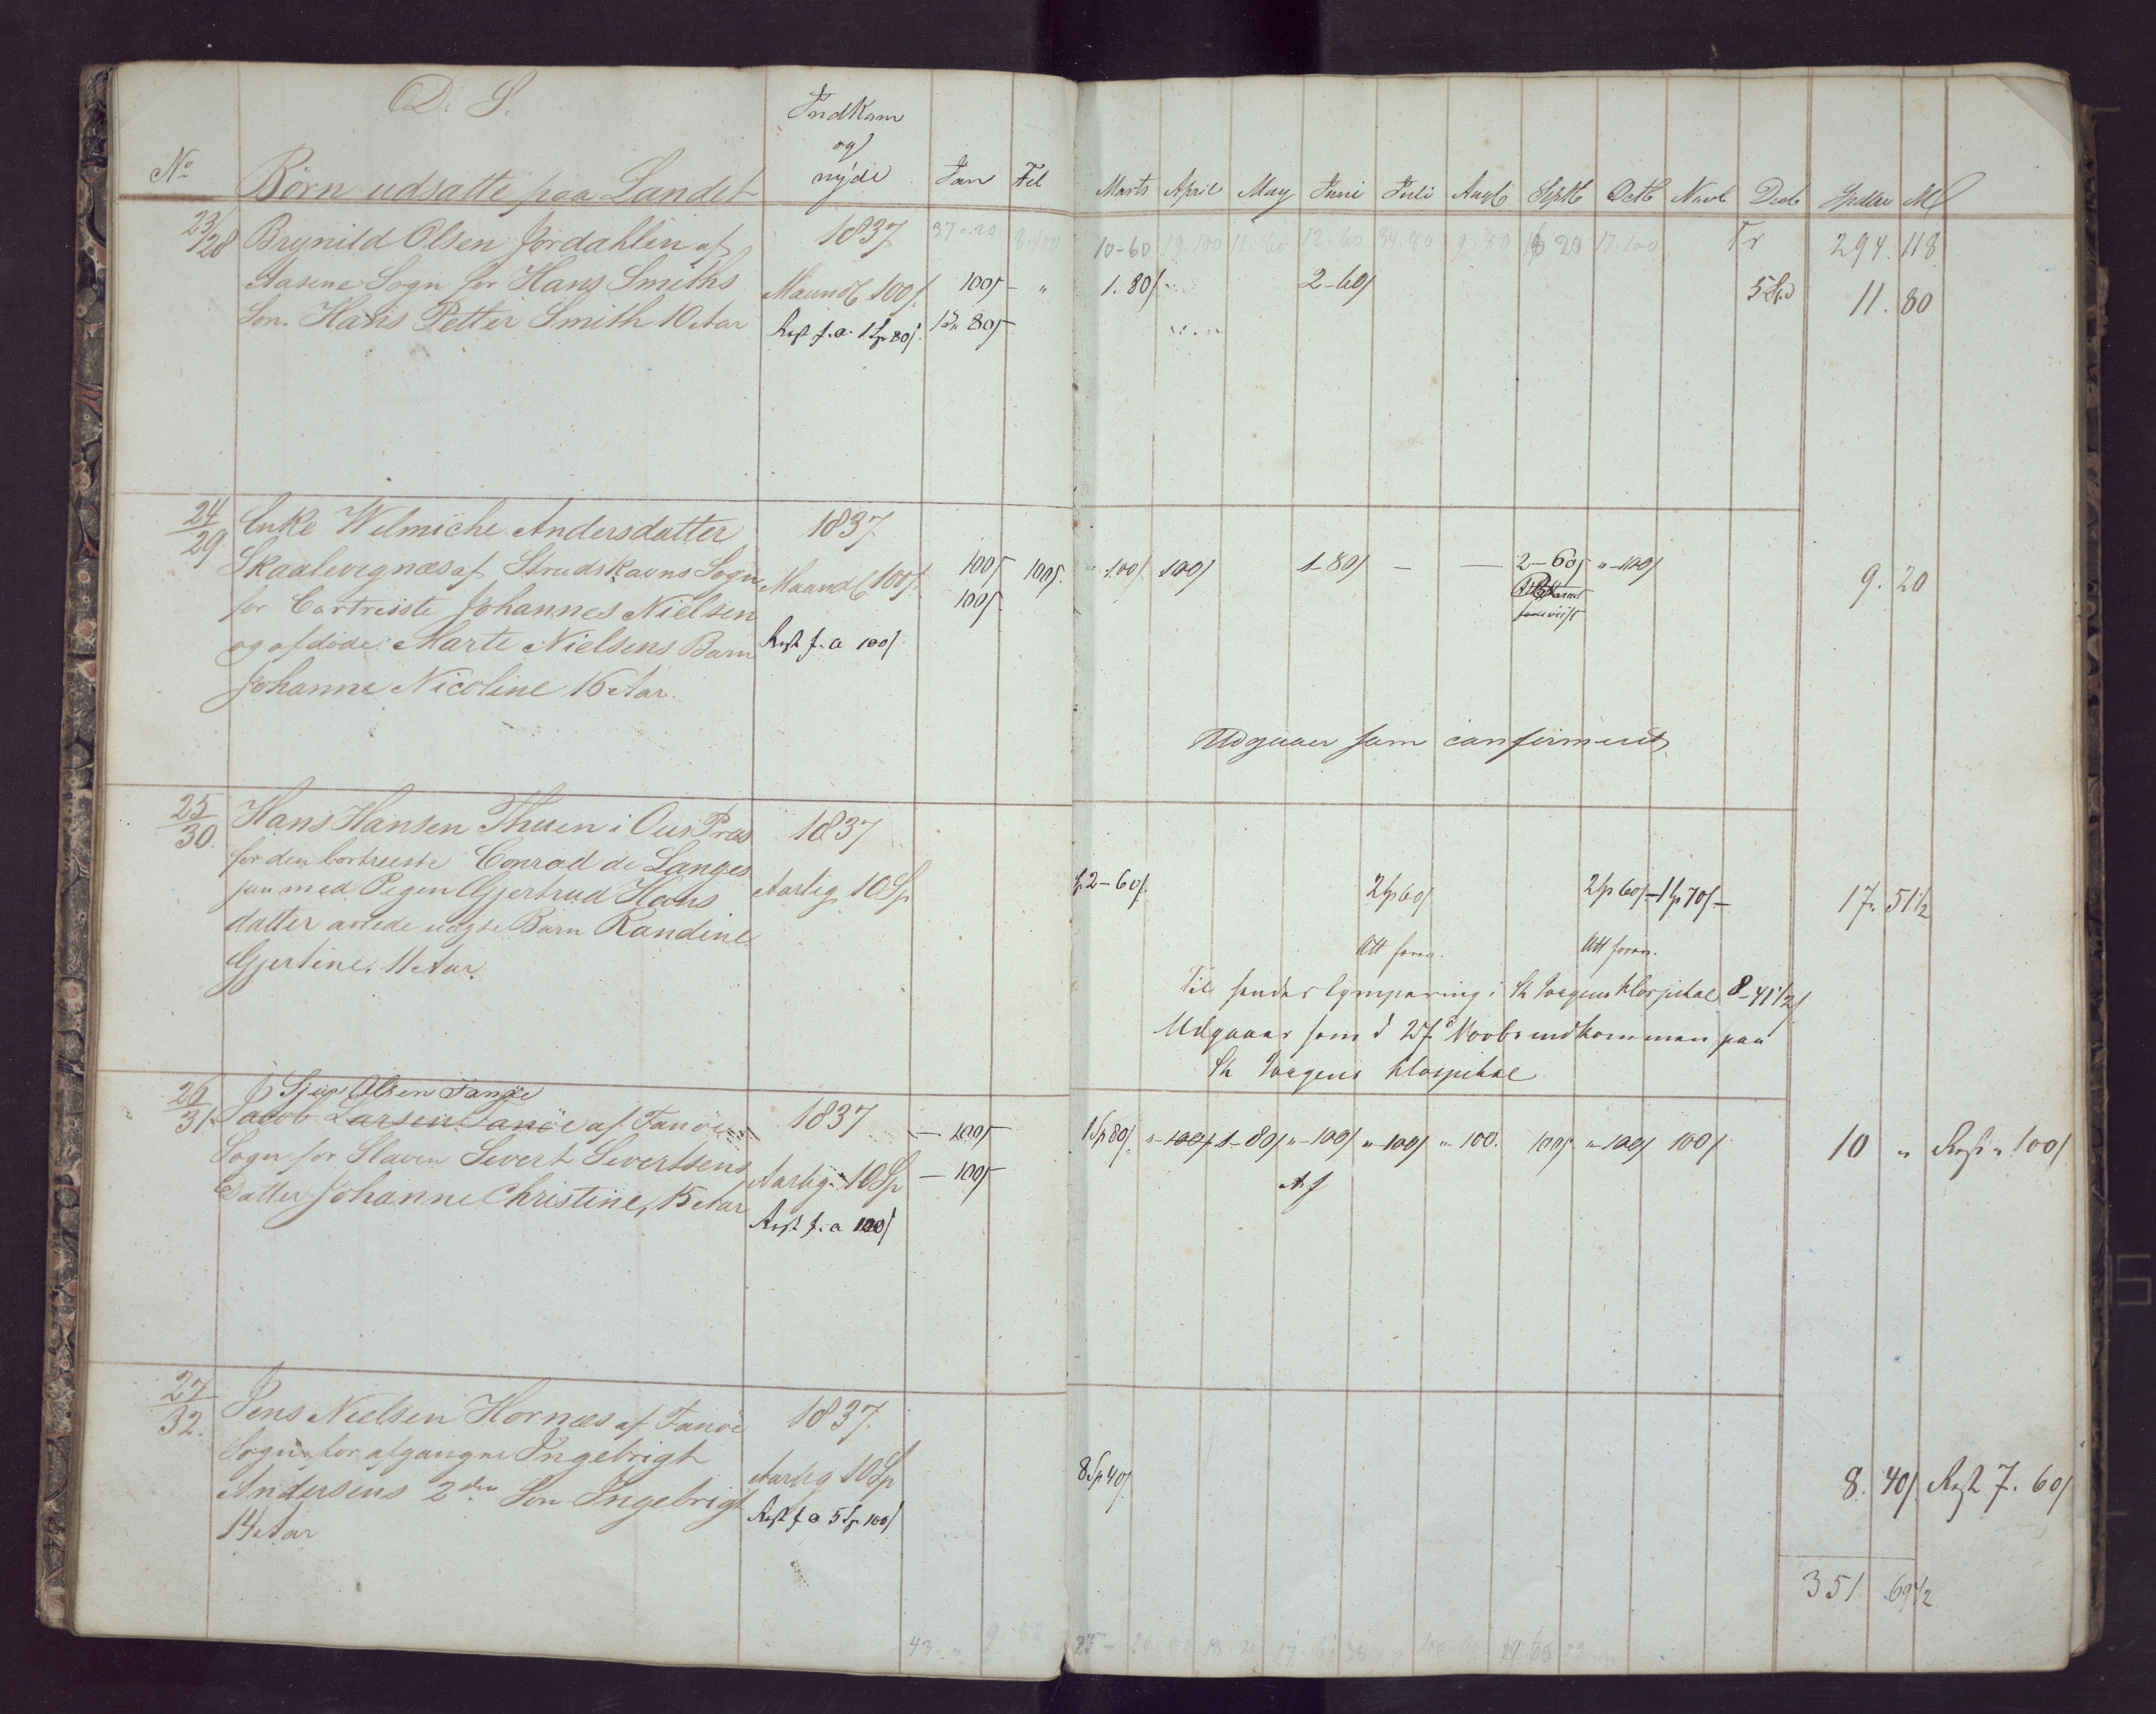 D. S.
Indkom
og
nyde
No
Børn udsatte paa Landet
Jan
Feb
Marts April May Juni Juli Augt Septb Octb Novb Decb Spdlr
23/28 Brynild Olsen Jordahlen af
Aasene Sogn for Hans Smiths
Søn. Hans Petter Smith 10 Aar
1837
Maanedl 100/.
Rest f. a. 1 Sp 80/.
37 - 20
8.100
10-60 19.100 11.60 12.60 34.80 9.80 20 17.100
Tr
294. 118
100/ - "
80/
1. 80/
2-60/
11. 80
24/29 Enke Welmiche Andersdatter
af Strudshavns Sogn
for bortreiste Johannes Nielsen
og afdøde Marte Nielsens Barn
Johanne Nicoline 16 Aar.
1837
Maanedl 100/.
Rest f. a 100/
100/ 100/.
100/
100/ 100/ 1-80/ - - 2-60/ " -100/
foreviist
9. 20
Udgaaer som confirmeret
25/30. Hans Hansen Thuen i Ous Præs
for den bortreiste Conrad de Langes
med Pigen Gjertrud Hans
datter avlede uægte Barn Randine
Gjertine. 11 Aar.
1837
Aarlig 10 Sp
2-60/.
2 Sp 60/
2 Sp 60/ - 1 Sp 70/ -
17. 51 1/2
Att forev.
Att forev.
Til i St Jørgens Hospital 8-41 1/2/
Udgaaer som d 27 Novbr indkommen paa
St Jørgens Hospital
26/31. Sjur Olsen Fanøe
Jacob Larsen Fanöe af Fanöe
Sogn for Slaven Sivert Sivertsens
Datter Johanne Christine, 15 Aar
1837
Aarlig 10 Sp
Rest f. a 100/
- 100/
- 100/
1 Sp 80/. " -100/ 1-80/ " -100/ " -100/ " 100. 100/. " -100/ 100/
10 " Rest " 100/
27/32. Jens Nielsen Hornæs af Fanöe
Sogn for afgangne Ingebrigt
Andersens 2den Søn Ingebrigt
14 Aar
1837.
Aarlig 10 Sp
Rest f a 5 Sp 100/
8 Sp 40/.
8. 40/. Rest 7. 60/
351 69 1/2
43. "